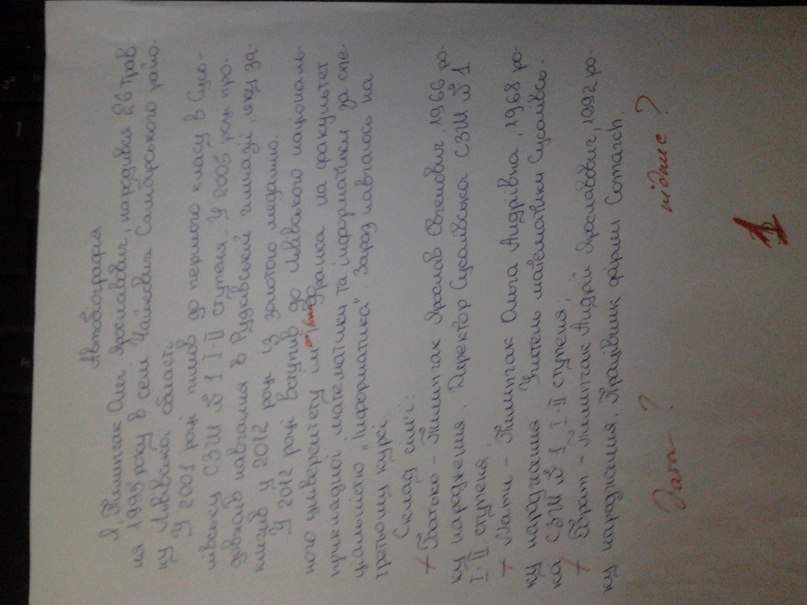 Автобіографія
Я, Пилипчак Олег Ярославович, народився 26 трав-
ня 1995 року в селі Чайковичі Самбірського райо-
ну Львівської області.
У 2001 році пішов до першого класу в Сусо-
лівську СЗШ №1 І-ІІ ступеня. У 2005 році про-
довжив навчання в Рудківській гімназії, яку за-
кінчив у 2012 році із золотою медаллю.
У 2012 році вступив до Львівського національ-
ного університету ім. Івана Франка на факультет
прикладної математики та інформатики за спе-
ціальністю „Інформатика". Зараз навчаюсь на
третьому курсі.
Склад сім'ї:
Батько – Пилипчак Ярослав Євгенович, 1966 ро-
ку народження. Директор Сусолівської СЗШ №1
І-ІІ ступеня.
Мати – Пилипчак Ольга Андріївна, 1968 ро-
ку народження. Учитель математики Сусолівсь-
ка СЗШ №1 І-ІІ ступеня;
Брат – Пилипчак Андрій Ярославович, 1992 ро-
ку народження. Працівник фірми Comarch.
Дата – ? підпис ?
1